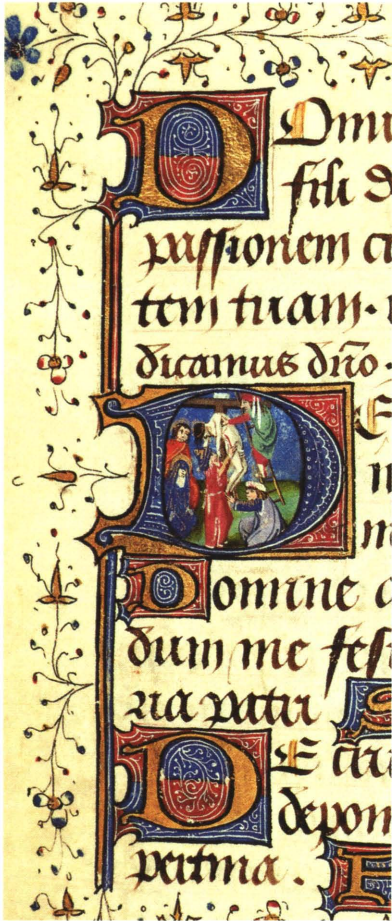 DOmi
fili d
passionem
tem tuam.
dicamus dño.
DE
Domine a
dum me fes
ria patri S
DE cru
depon
pertina. F